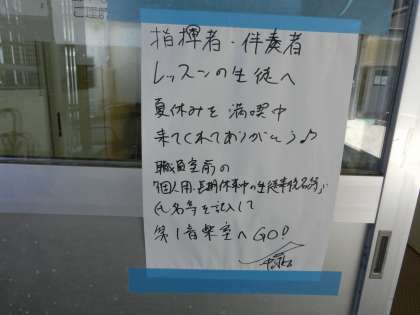 指揮者・伴奏者
レッスンの生徒へ
夏休みを満喫中
来てくれてありがとう♪
職員室前の
「個人用・長期休業中の生徒来校名簿」に
氏名等を記入して
第1音楽室へGO!